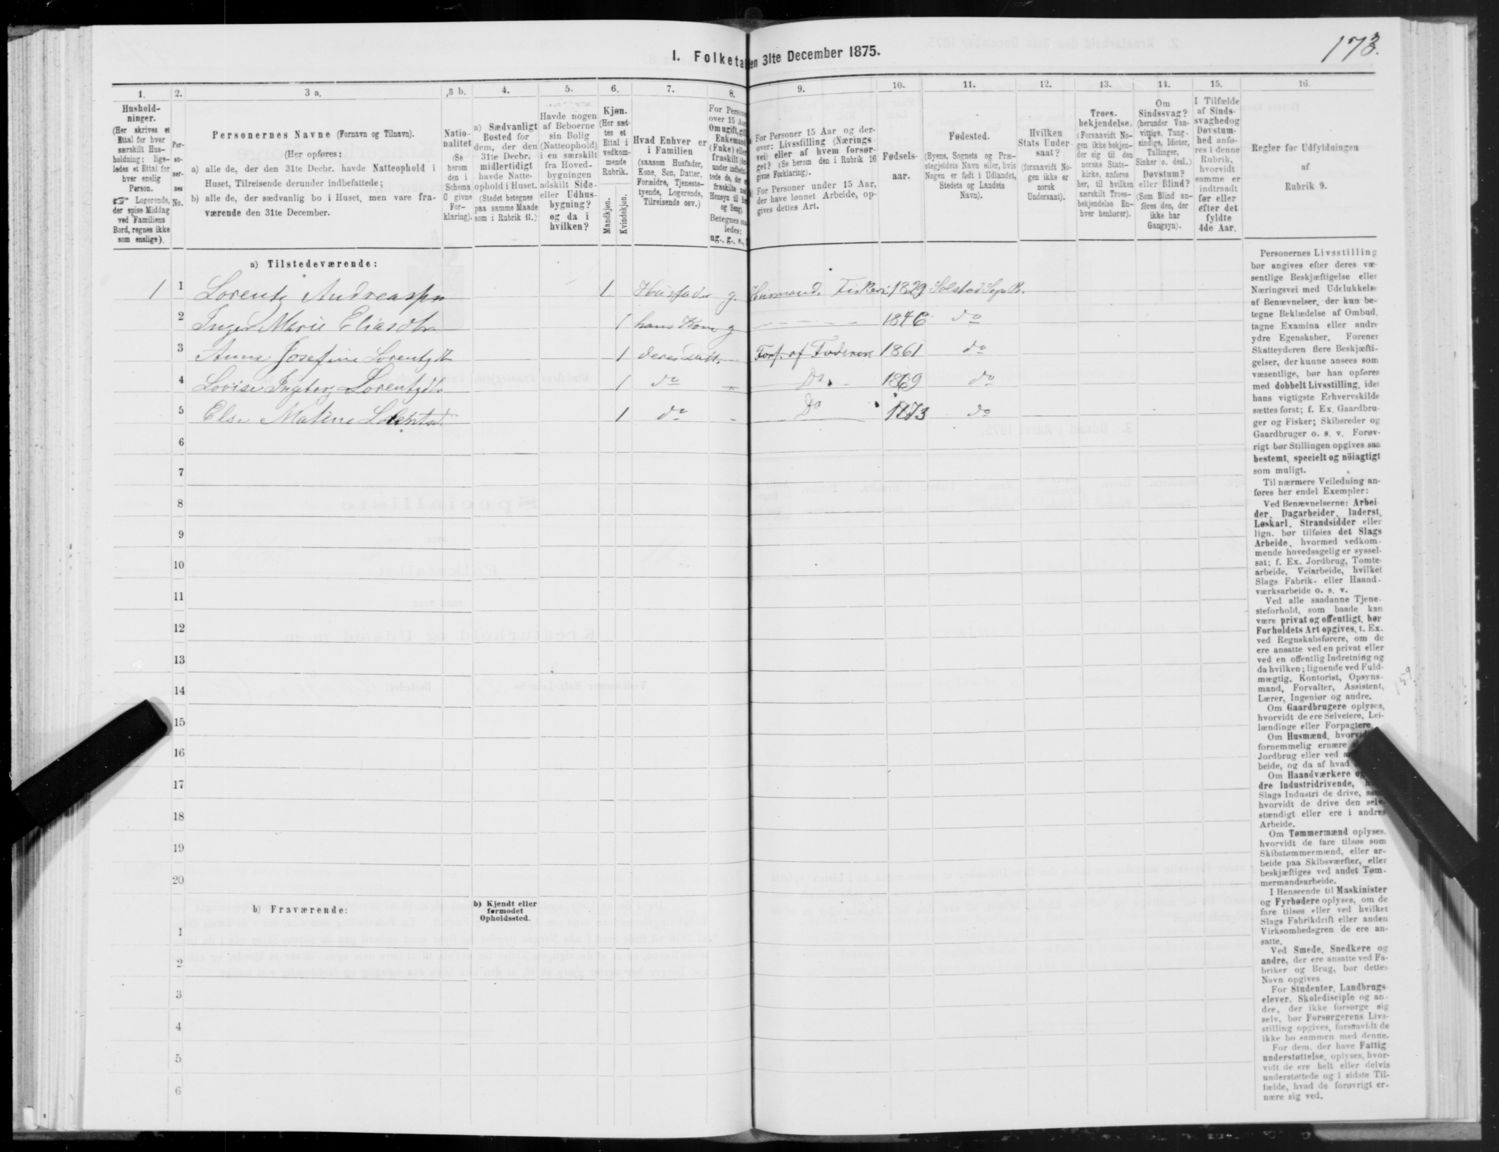 173.
I. Folketal den 31te December 1875.
1. 2. 3 a. 3 b. 4. 5. 6. 7. 8. 9. 10. 11. 12. 13. 14. 15. 16.
Hushold-
ninger.
(Her skrives et
Ettal for hver
særskilt Hus-
holdning; lige-
ledes et Ettal for
hver enslig
Person.
☞ Logerende,
der spise Middag
ved Familiens
Bord, regnes ikke
som enslige).
Per-
so-
ner-
nes
No.
Personernes Navne (Fornavn og Tilnavn).
(Her opføres:
a) alle de, der den 31te Decbr. havde Natteophold i
Huset, Tilreisende derunder indbefattede;
b) alle de, der sædvanlig bo i Huset, men vare fra-
værende den 31te December.
Natio-
nalitet
(Se
herom
den i
Schema
O givne
For-
klaring).
a) Sædvanligt
Bosted for
dem, der den
31te Decbr.
midlertidigt
havde Natte-
ophold i Huset.
(Stedet betegnes
paa samme Maade
som i Rubrik 11.)
Havde nogen
af Beboerne
sin Bolig
(Natteophold)
i en særskilt
fra Hoved-
bygningen
adskilt Side-
eller Udhus-
bygning?
og da i
hvilken?
Kjøn.
(Her sæt-
tes et
Ettal i
vedkom-
mende
Rubrik.
Mandkjøn.
Kvindekjøn.
Hvad Enhver er
i Familien
(saasom Husfader,
Kone, Søn, Datter,
Forældre, Tjeneste-
tyende, Logerende,
Tilreisende osv.)
For Personer
over 15 Aar:
Om ugift, gift,
Enkemand
(Enke) eller
fraskilt
For Personer 15 Aar og der-
over: Livsstilling (Nærings-
vei) eller af hvem forsør-
get? (Se herom den i Rubrik 16
givne Forklaring).
For Personer under 15 Aar,
der have lønnet Arbeide, op-
gives dettes Art.
Fødsels-
aar.
Fødested.
(Byens, Sognets og Præ-
stegjeldets Navn eller, hvis
Nogen er født i Udlandet,
Stedets og Landets
Navn).
Hvilken
Stats Under-
saat?
(forsaavidt No-
gen ikke er
norsk
Undersaat).
Troes-
bekjendelse.
(Forsaavidt No-
gen ikke bekjen-
der sig til den
norske Stats-
kirke, anføres
her, til hvilken
særskilt Troes-
bekjendelse En-
hver henhører).
Om
Sindssvag?
(herunder Van-
vittige, Tung-
sindige, Idioter,
Tullinger,
Sinker o. desl.)
Døvstum?
eller Blind?
(Som Blind an-
føres den, der
ikke har
Gangsyn).
I Tilfælde
af Sinds-
svaghed og
Døvstum-
hed anfø-
res i denne
Rubrik,
hvorvidt
samme er
indtraadt
før eller
efter det
fyldte
4de Aar.
Regler for Udfyldningen
af
Rubrik 9.
a) Tilstedeværende:
1 1 Lorentz Andreassen 1 Husfader g. Husmand. Fisker. 1829
2 Inger Marie Eliasdtr 1 hans Kone g 1846 do
3 Anne Josefine Lorentzdtr 1 deres Datt. Fors. af Faderen 1861 do
4 Lovise Ingborg Lorentzdtr 1 do Do. 1869 do
5 Else Matine 1 do Do 1873 do
6
7
8
9
10
11
12
13
14
15
16
17
18
19
20
b) Fraværende:
b) Kjendt eller
formodet
Opholdssted.
1
2
3
4
5
6
Personernes Livsstilling
bør angives efter deres væ-
sentlige Beskjæftigelse eller
Næringsvei med Udelukkelse
af Benævnelser, der kun be-
tegne Beklædelse af Ombud,
tagne Examina eller andre
ydre Egenskaber. Forener
Skatteyderen flere Beskjæfti-
gelser, der kunne ansees som
væsentlige, bør han opføres
med dobbelt Livsstilling, idet
hans vigtigste Erhvervskilde
sættes først; f. Ex. Gaardbru-
ger og Fisker; Skibsreder og
Gaardbruger o. s. v. Forøv-
rigt bør Stillingen opgives saa
bestemt, specielt og nöiagtigt
som muligt.
Til nærmere Veiledning an-
føres her endel Exempler:
Ved Benævnelserne: Arbei-
der, Dagarbeider, Inderst,
Løskarl, Strandsidder eller
lign. bør tilføies det Slags
Arbeide, hvormed vedkom-
mende hovedsagelig er syssel-
sat; f. Ex. Jordbrug, Tomte-
arbeide, Veiarbeide, hvilket
Slags Fabrik- eller Haand-
værksarbeide o. s. v.
Ved alle saadanne Tjene-
steforhold, som baade kan
være privat og offentligt, bør
Forholdets Art opgives, t. Ex.
ved Regnskabsførere, om de
ere ansatte ved en privat eller
ved en offentlig Indretning og
da hvilken; lignende ved Fuld-
mægtig, Kontorist, Opsyns-
mand, Forvalter, Assistent,
Lærer, Ingeniør og andre.
Om Gaardbrugere oplyses,
hvorvidt de ere Selveiere, Lei-
lændinge eller Forpagtere.
Om Husmænd, hvorvidt
fornemmelig ernære
Jordbrug eller ved
beide, og da af hvad
Om Haandværkere og
dre Industridrivende,
Slags Industri de drive, samt
hvorvidt de drive den selv-
stændigt eller ere i andres
Arbeide.
Om Tømmermænd oplyses,
hvorvidt de fare tilsøs som
Skibstømmermænd, eller ar-
beide paa Skibsværfter, eller
beskjæftiges ved andet Tøm-
mermandsarbeide.
I Henseende til Maskinister
og Fyrbødere oplyses, om de
fare tilsøs eller ved hvilket
Slags Fabrikdrift eller anden
Virksomhedsgren de ere an-
satte.
Ved Smede, Snedkere og
andre, der ere ansatte ved Fa-
briker og Brug, bør dettes
Navn opgives.
For Studenter, Landbrugs-
elever, Skoledisciple og an-
dre, der ikke forsørge sig
selv, bør Forsørgerens Livs-
stilling opgives, forsaavidt de
ikke bo sammen med denne.
For dem, der have Fattig-
understøttelse, oplyses, hvor-
vidt de ere helt eller delvis
understøttede og i sidste Til-
fælde, hvad de forøvrigt er-
nære sig ved.